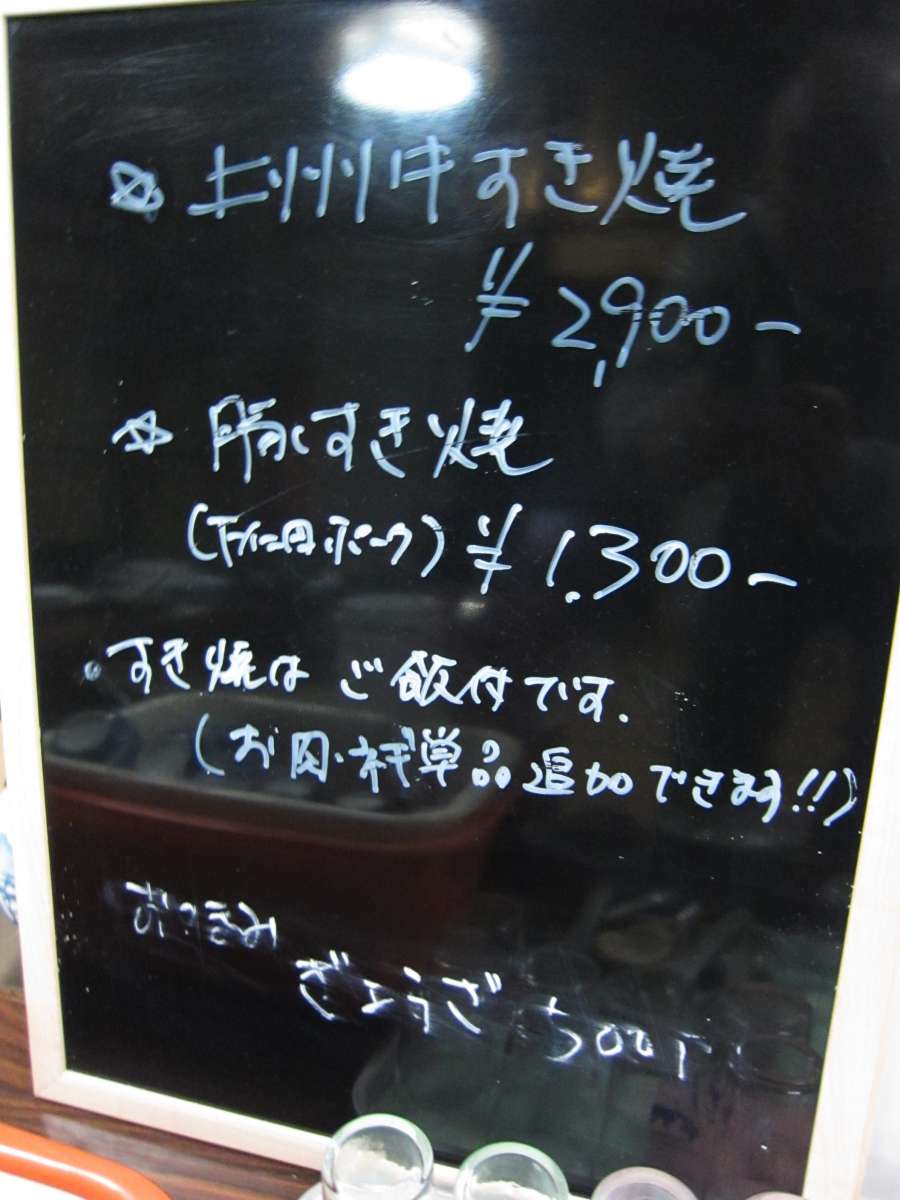 ☆ 上州牛すき焼
¥2,900-
☆ 豚すき焼
(下仁田ポーク) ¥1.300-
・すき焼は ご飯付です.
(お肉・ネギ単品追加できます!!)
おつまみ
ぎょうざ 500円